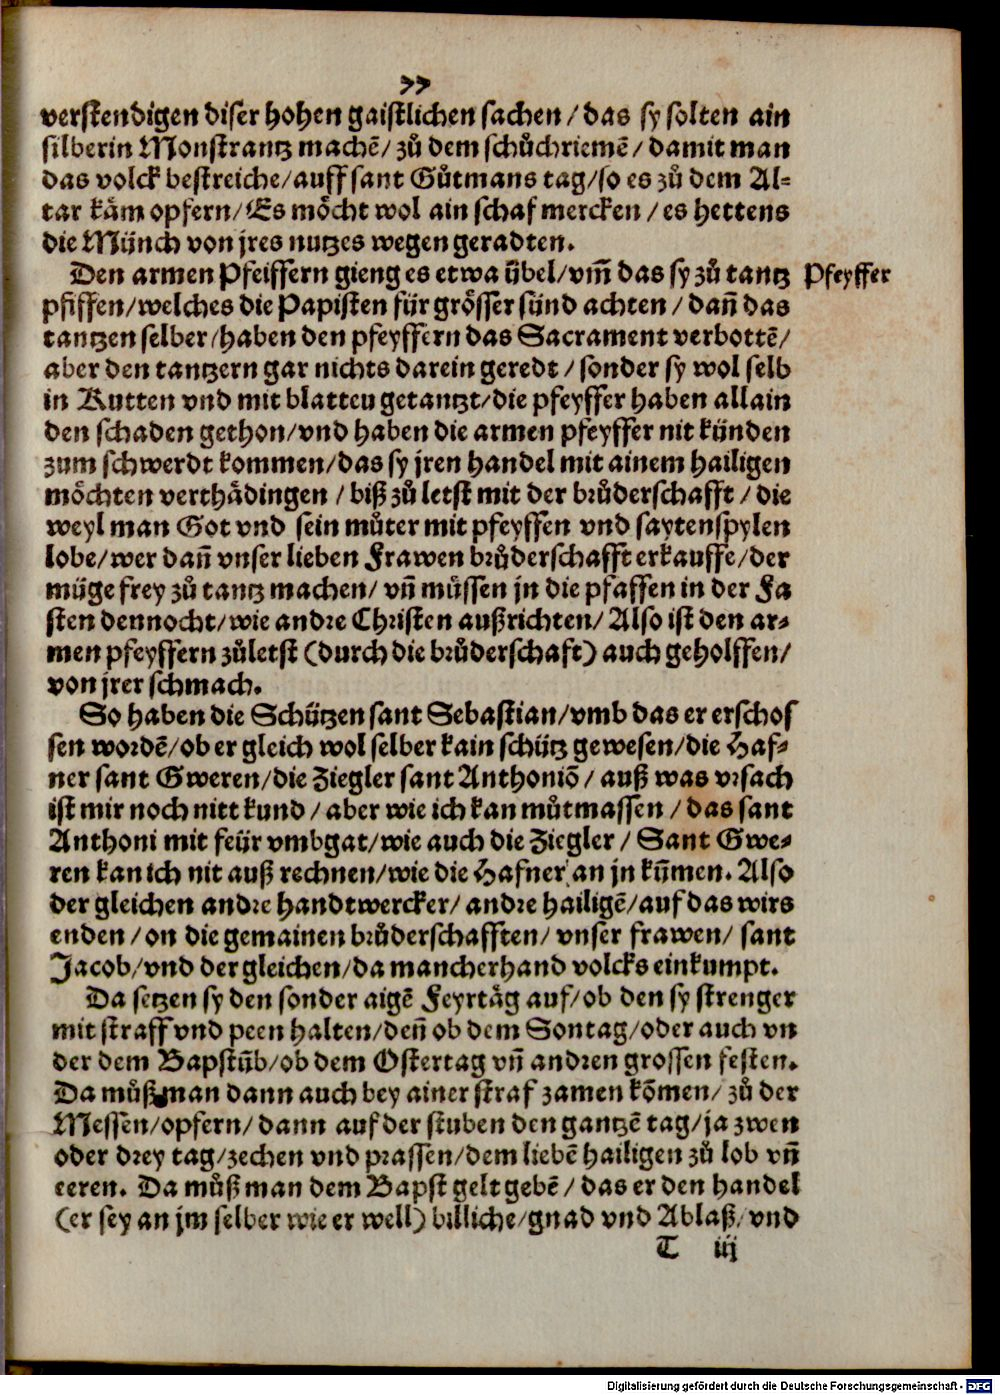 77
verstendigen diser hohen gaistlichen sachen / das sy solten ain
silberin Monstrantz machē / zů dem schůchriemē / damit man
das volck bestreiche / auff sant Gůtmans tag / so es zů dem Al⸗
tar kåm opfern / Es möcht wol ain schaf mercken / es hettens
die Münch von jres nutzes wegen geradten.
Den armen Pfeiffern gieng es etwa übel / vm̄ das sy zů tantz
Pfeyffer
pfiffen / welches die Papisten für grösser sünd achten / dan̄ das
tantzen selber / haben den pfeyffern das Sacrament verbottē /
aber den tantzern gar nichts darein geredt / sonder sy wol selb
in Kutten vnd mit blatteu getantzt / die pfeyffer haben allain
den schaden gethon / vnd haben die armen pfeyffer nit künden
zum schwerdt kommen / das sy jren handel mit ainem hailigen
möchten verthådingen / biß zů letst mit der brůderschafft / die
weyl man Got vnd sein můter mit pfeyffen vnd saytenspylen
lobe / wer dan̄ vnser lieben Frawen brůderschafft erkauffe / der
müge frey zů tantz machen / vn̄ müssen jn die pfaffen in der Fa
sten dennocht / wie andre Christen außrichten / Also ist den ar⸗
men pfeyffern zůletst (durch die brůderschaft) auch geholffen /
von jrer schmach.
So haben die Schützen sant Sebastian / vmb das er erschos
sen wordē / ob er gleich wol selber kain schütz gewesen / die Haf⸗
ner sant Gweren / die Ziegler sant Anthoniō / auß was vrsach
ist mir noch nitt kund / aber wie ich kan můtmassen / das sant
Anthoni mit feür vmbgat / wie auch die Ziegler / Sant Gwe⸗
ren kan ich nit auß rechnen / wie die Hafner an jn kum̄en. Also
der gleichen andre handtwercker / andre hailigē / auf das wirs
enden / on die gemainen brůderschafften / vnser frawen / sant
Jacob / vnd der gleichen / da mancherhand volcks einkumpt.
Da setzen sy den sonder aigē Feyrtåg auf / ob den sy strenger
mit straff vnd peen halten / den̄ ob dem Sontag / oder auch vn
der dem Bapstūb / ob dem Ostertag vn̄ andren grossen festen.
Da můß man dann auch bey ainer straf zamen kōmen / zů der
Messen / opfern / dann auf der stuben den gantzē tag / ja zwen
oder drey tag / zechen vnd prassen / dem liebē hailigen zů lob vn̄
eeren. Da můß man dem Bapst gelt gebē / das er den handel
(er sey an jm selber wie er well) billiche / gnad vnd Ablaß / vnd
T iij
Digitalisierung gefördert durch die Deutsche Forschungsgemeinschaft - DFG